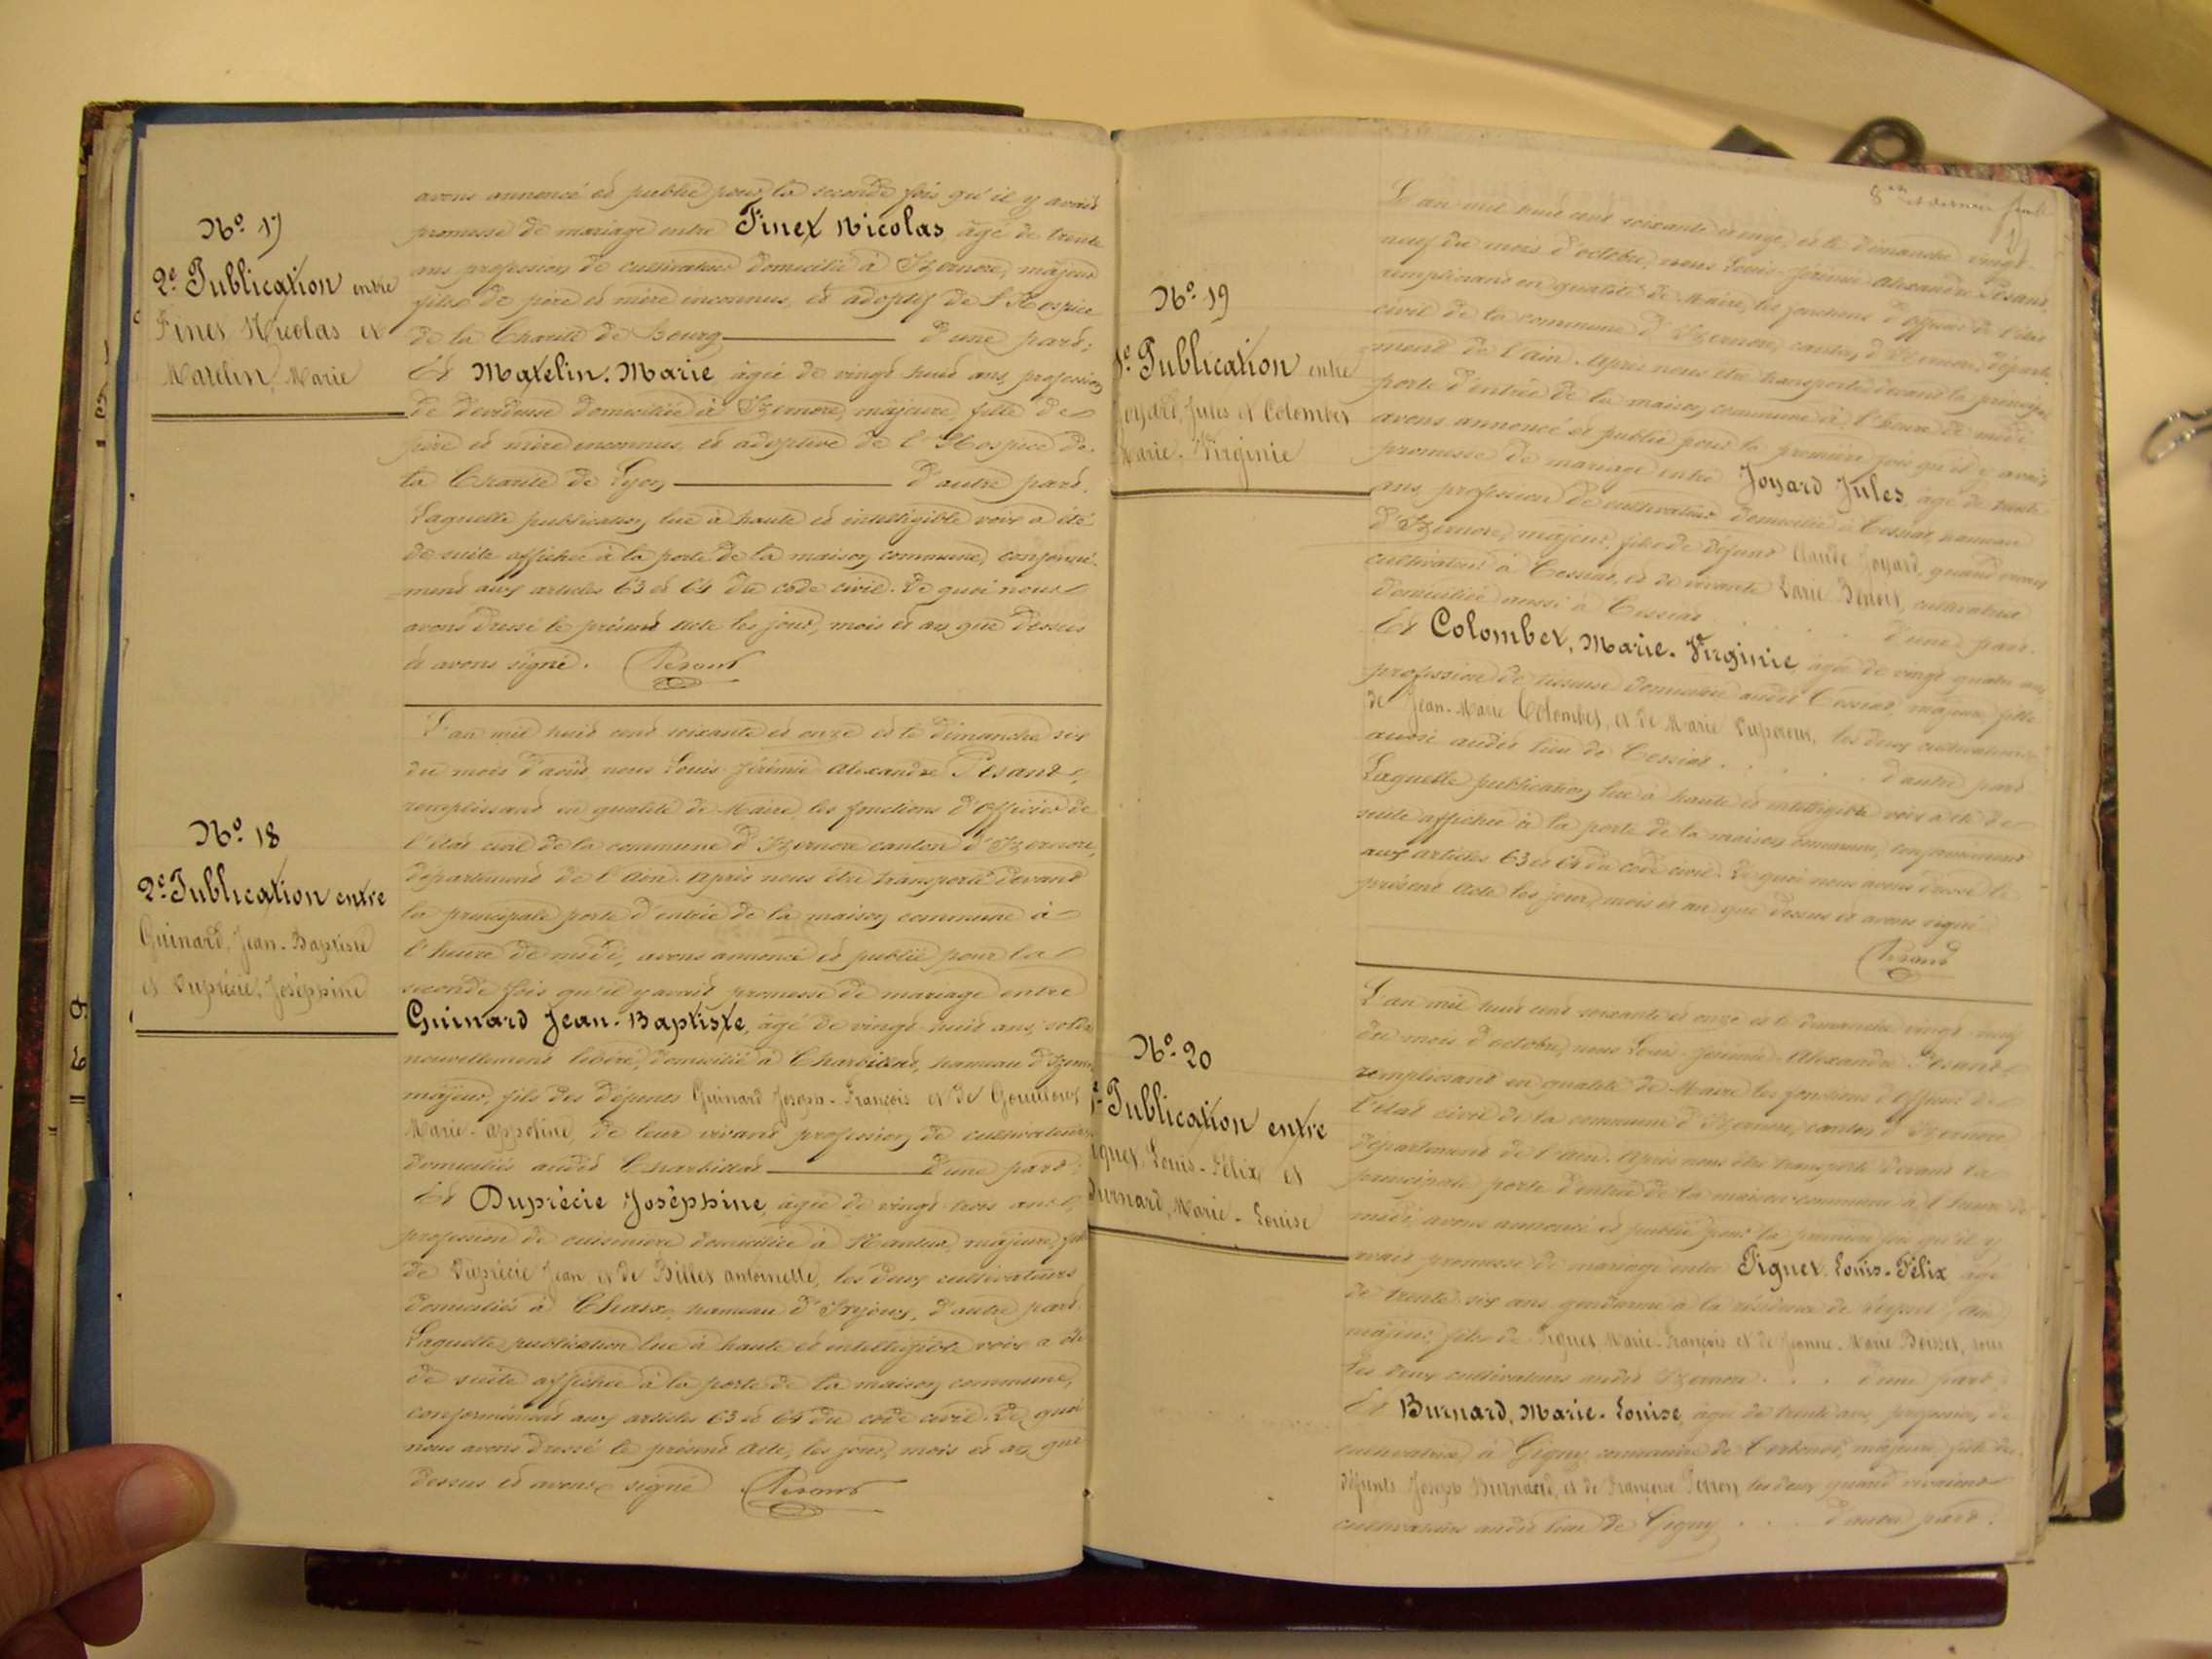 No. 17
2e. Publication entre
Finet Nicolas et
Matelin, Marie
avons annoncé et publié pour la seconde fois qu'il y avait
promesse de mariage entre Finet Nicolas, âgé de trente
ans profession de cultivateur domicilié à Izernore, majeur
fils de père et mère inconnus, et adoptif de l'Hospice
de la Charité de Bourg d'une part;
Et Matelin. Marie âgée de vingt huit ans, profession
de dévideuse domiciliée à Izernore, majeure, fille de
père et mère inconnus, et adoptive de l'Hospice de
la Charité de Lyon d'autre part.
Laquelle publication lue à haute et intelligible voix a été
de suite affichée à la porte de la maison commune, conformé-
ment aux articles 63 et 64 du code civil. De quoi nous
avons dressé le présent acte les jour, mois et an que dessus
et avons signé. Pesant
No. 18
2e. Publication entre
Guinard, Jean-Baptiste
et Duprécie, Joséphine
L'an mil huit cent soixante et onze et le dimanche six
du mois d'août, nous Louis Jérémie Alexandre Pesant,
remplissant en qualité de Maire les fonctions d'Officier de
l'état civil de la commune d'Izernore canton d'Izernore,
département de l'Ain. Après nous être transporté devant
la principale porte d'entrée de la maison commune à
l'heure de midi, avons annoncé et publié pour la
seconde fois qu'il y avait promesse de mariage entre
Guinard Jean-Baptiste, âgé de vingt-huit ans, soldat
nouvellement libéré, domicilié à Charbillat, hameau d'Izernore
majeur, fils des défunts Guinard Joseph-François et de Gouilloux
Marie-appoline, de leur vivant profession de cultivateurs
domiciliés audit Charbillat d'une part;
Et Duprécie Joséphine, âgée de vingt-trois ans,
profession de cuisinière domiciliée à Nantua, majeure, fille
de Duprécie Jean et de Billet antoinette, les deux cultivateurs
domiciliés à Chaix, hameau d', d'autre part.
Laquelle publication lue à haute et intelligible voix a été
de suite affichée à la porte de la maison commune,
conformément aux articles 63 et 64 du code civil. De quoi
nous avons dressé le présent Acte, les jour, mois et an que
dessus et avons signé Pesant
8 et dernier
No. 19
1e. Publication entre
Joyard, Jules et Colombet
Marie-Virginie
L'an mil huit cent soixante et onze, et le dimanche vingt-
neuf du mois d'octobre, nous Louis-Jérémie Alexandre Pesant,
remplissant en qualité de Maire, les fonctions d'officier de l'état
civil de la commune d'Izernore, canton d'Izernore, départe-
ment de l'ain. Après nous être transporté devant la principale
porte d'entrée de la maison commune à l'heure de midi
avons annoncé et publié pour la première fois qu'il y avait
promesse de mariage entre Joyard Jules, âgé de trente
ans, profession de cultivateur domicilié à Cessiat, hameau
d'Izernore, majeur, fils de défunt Claude Joyard, quand vivait
cultivateur à Cessiat, et de vivante Benoit, cultivatrice
domiciliée aussi à Cessiat . . . . d'une part.
Et Colombet, Marie-Virginie, âgée de vingt quatre ans,
profession de domiciliée audit Cessiat, majeure, fille
de Jean-Marie Colombet, et de Marie, les deux cultivateurs
aussi audit lieu de Cessiat . . . . d'autre part
Laquelle publication lue à haute et intelligible voix a été de
suite affichée à la porte de la maison commune, conformément
aux articles 63 et 64 du code civil. De quoi nous avons dressé le
présent Acte les jour, mois et an que dessus et avons signé
Pesant
No. 20
1e. Publication entre
Piguet, Louis-Félix et
Burnard, Marie-Louise
L'an mil huit cent soixante et onze et le dimanche vingt-neuf
du mois d'octobre, nous Louis-Jérémie Alexandre Pesant
remplissant en qualité de Maire les fonctions d'officier de
l'état civil de la commune d'Izernore, canton d'Izernore
département de l'Ain. Après nous être transporté devant la
principale porte d'entrée de la maison commune à l'heure de
midi, avons annoncé et publié pour la première fois qu'il y
avait promesse de mariage entre Piguet, Louis-Félix, âgé
de trente six ans gendarme à la résidence de (Ain)
majeur, fils de Piguet Marie-François et de Jeanne-Marie Boisset, tous
les deux cultivateurs audit Izernore . . . d'une part,
Et Burnard, Marie-Louise, âgée de trente ans, profession de
cultivatrice à Gigny, commune de, majeure, fille des
défunts Joseph Burnard, et de Françoise Perron, les deux quand vivaient
cultivateurs audit lieu de Gigny . . . d'autre part.